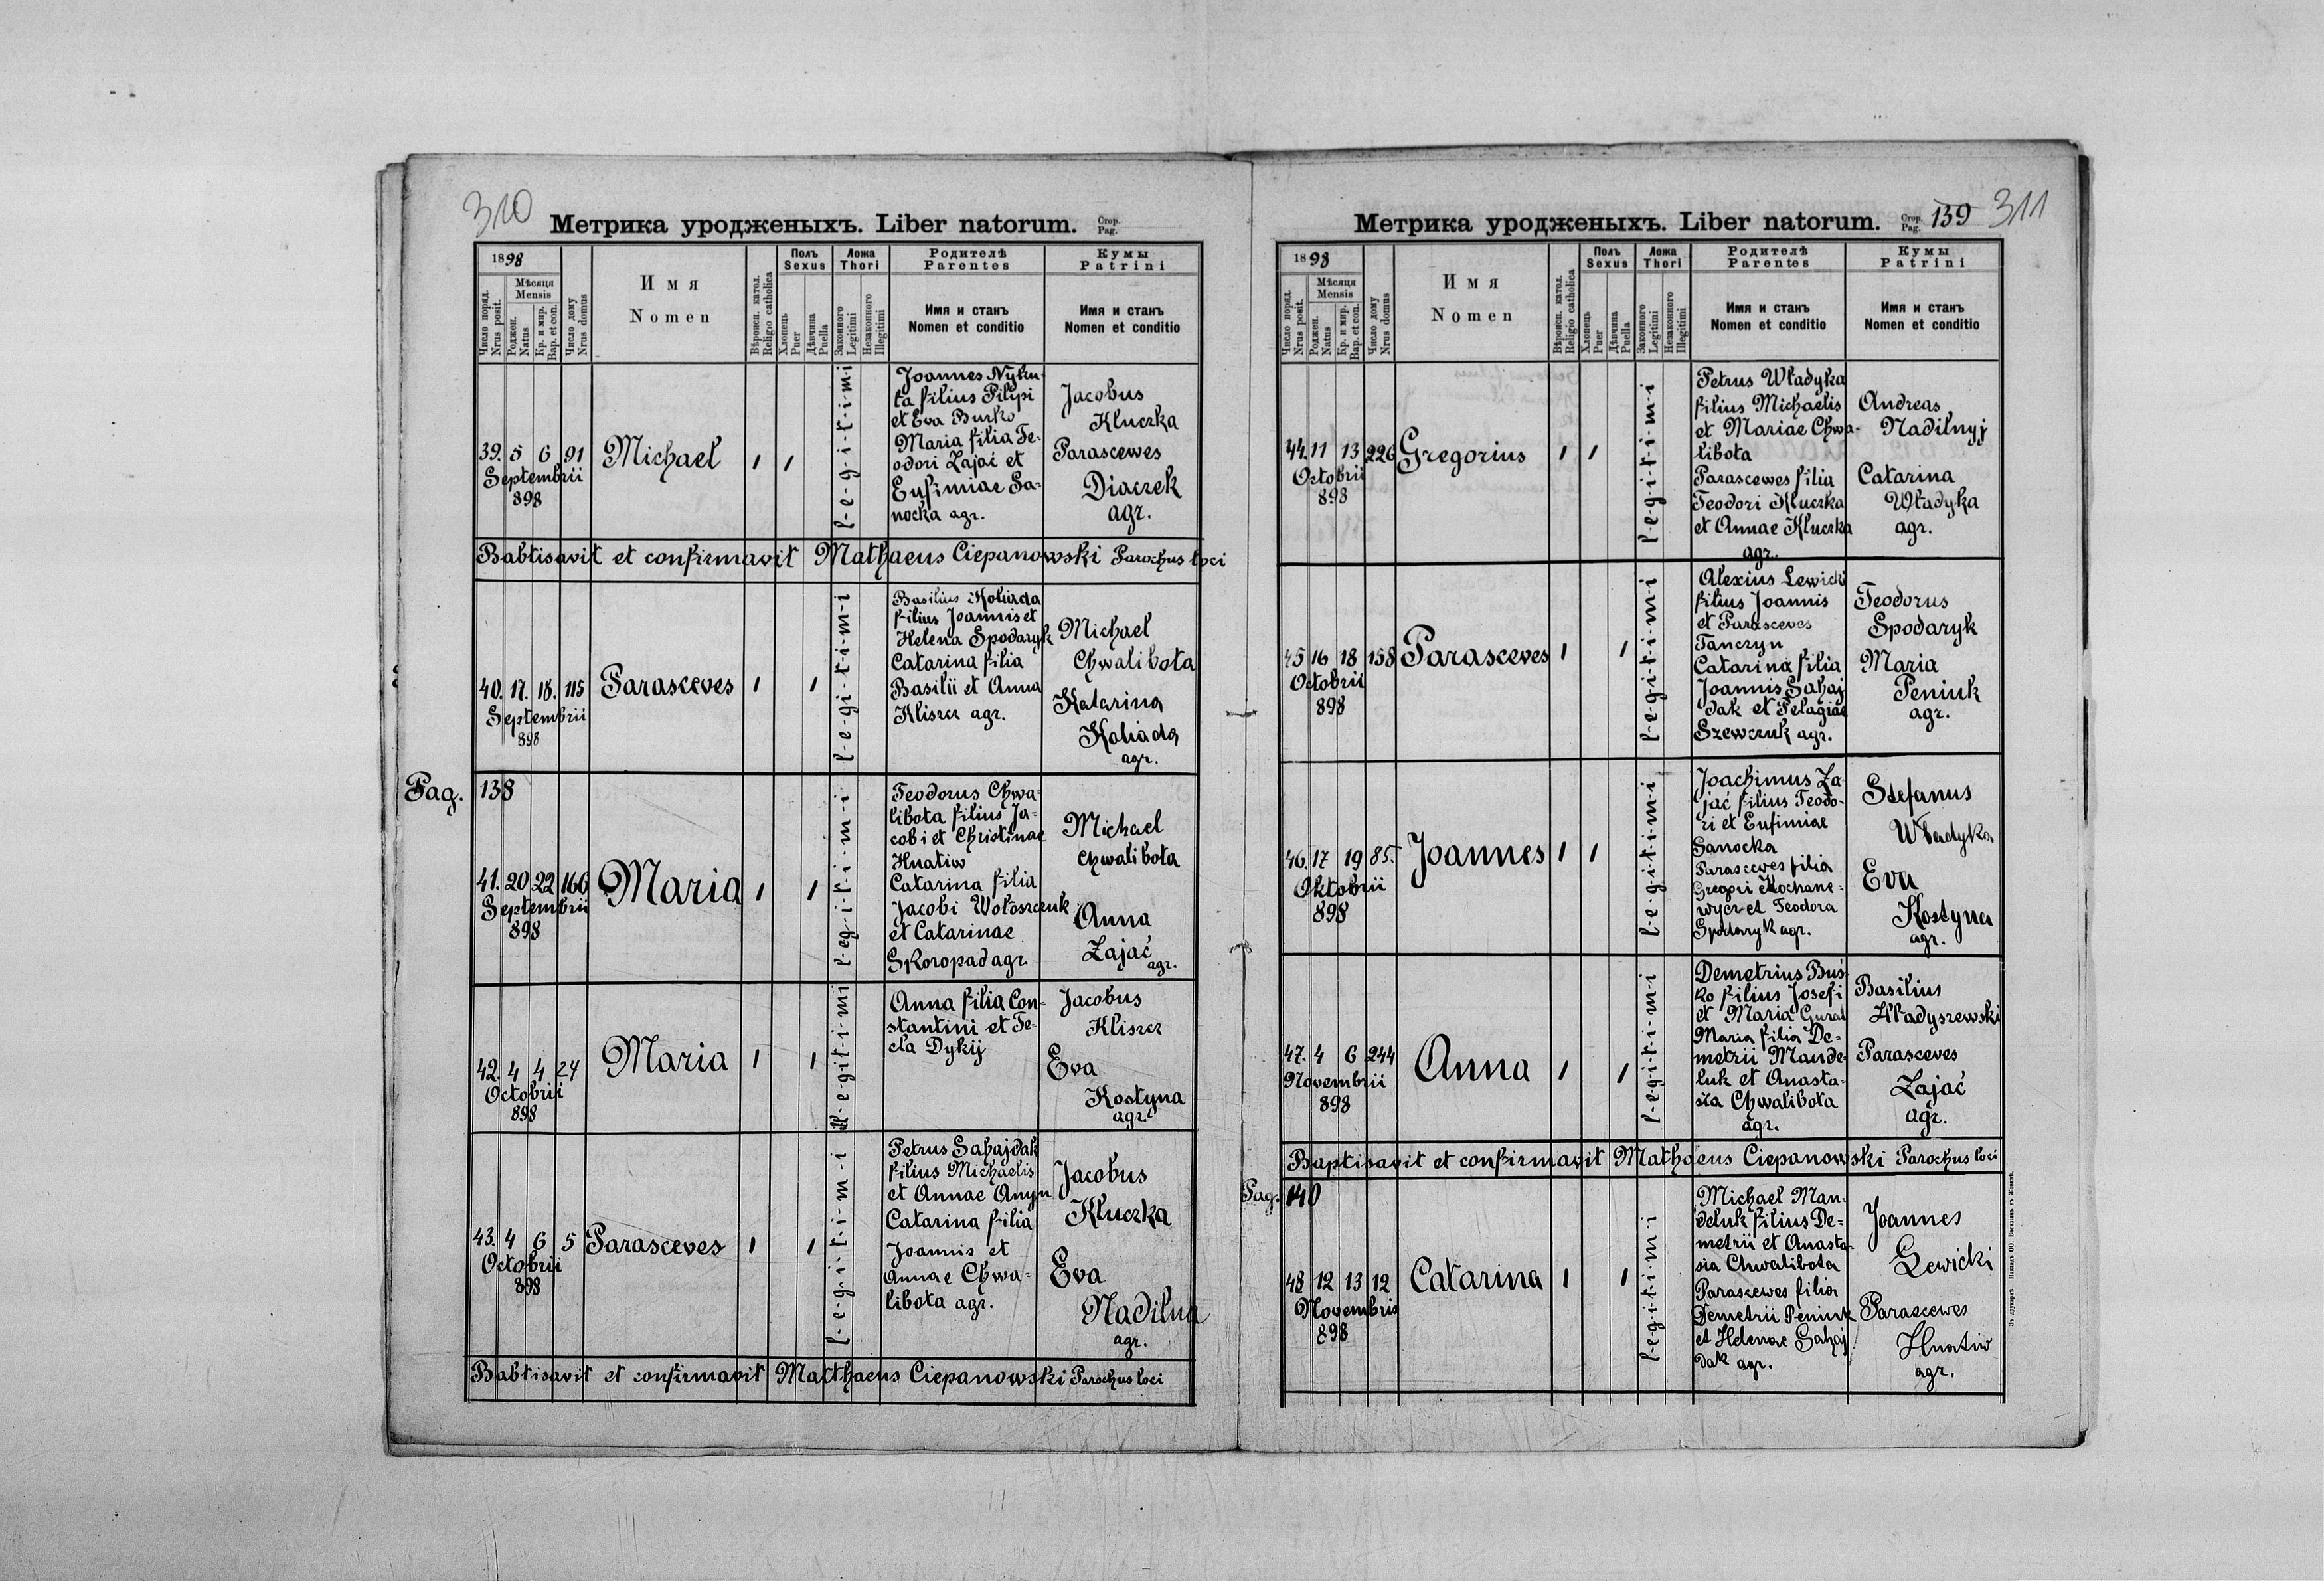 310
Метрика уродженыхъ. Liber natorum. Стор. Pag.
1898
Число поряд. Nrus posit.
Мѣсяця Mensis
Роджен. Natus
Кр. и мир. Bap. et con.
Число дому Nrus domus
Имя
Nomen
Вѣроисп. катол. Religio catholica
Полъ Sexus
Хлопець Puer
Дѣвчина Puella
Ложа Thori
Законного Legitimi
Незаконного Illegitimi
Родителѣ Parentes
Имя и станъ
Nomen et conditio
Кумы Patrini
Имя и станъ
Nomen et conditio
39. 5 6 91
Septembrii
898
Michael
l-e-g-i-t-i-m-i
Joannes Nyku-
ta filius Pilipi
et Eva Burko
Maria filia Te-
odori Zająć et
Eufimiae Sa-
nocka agr.
Jacobus
Kluczka
Parascewes
Diaczek
agr.
Babtisavit et confirmavit Mathaeus Ciepanowski Parochus loci
40. 17. 18. 115
Septembrii
898
Parasceves
l-e-g-i-t-i-m-i
Basilius Koliada
filius Joannis et
Helena Spodaryk
Catarina filia
Basilii et Anna
Kliszcz agr.
Michael
Chwalibota
Katarina
Koliada
agr.
Pag. 138
41. 20 22 166
Septembrii
898
Maria
l-e-g-i-t-i-m-i
Teodorus Chwa-
libota filius Ja-
cobi et Christinae
Hnatiw
Catarina filia
Jacobi Wołoszczuk
et Catarinae
Skoropad agr.
Michael
Chwalibota
Anna
Zająć
agr.
42. 4 4 24
Octobrii
898
Maria
ill-e-g-i-t-i-mi
Anna filia Con-
stantini et Te-
cla Dykij
Jacobus
Kliszcz
Eva
Kostyna
agr.
43. 4 6 5
Octobrii
898
Parasceves
l-e-g-i-t-i-m-i
Petrus Sahajdak
filius Michaelis
et Annae Anyn
Catarina filia
Joannis et
Annae Chwa-
libota agr.
Jacobus
Kluczka
Eva
Nadilna
agr.
Babtisavit et confirmavit Matthaeus Ciepanowski Parochus loci
Метрика уродженыхъ. Liber natorum. Стор. Pag. 139 311
1898
Число поряд. Nrus posit.
Мѣсяця Mensis
Роджен. Natus
Кр. и мир. Bap. et con.
Число дому Nrus domus
Имя
Nomen
Вѣроисп. катол. Religio catholica
Полъ Sexus
Хлопець Puer
Дѣвчина Puella
Ложа Thori
Законного Legitimi
Незаконного Illegitimi
Родителѣ Parentes
Имя и станъ
Nomen et conditio
Кумы Patrini
Имя и станъ
Nomen et conditio
44. 11 13 226
Octobrii
898
Gregorius
l-e-g-i-t-i-m-i
Petrus Władyka
filius Michaelis
et Mariae Chwa-
libota
Parascewes filia
Teodori Kluczka
et Annae Kluczka
agr.
Andreas
Nadilnyj
Catarina
Władyka
agr.
45 16 18 158
Octobrii
898
Parasceves
l-e-g-i-t-i-m-i
Alexius Lewicki
filius Joannis
et Parasceves
Tanczyn
Catarina filia
Joannis Sahaj
dak et Pelagiae
Szewczuk agr.
Teodorus
Spodaryk
Maria
Peniuk
agr.
46. 17 19 85.
Oktobrii
898
Joannes
l-e-g-i-t-i-m-i
Joachimus Za-
jać filius Teodo-
ri et Eufimiae
Sanocka
Parascewes filia
Gregori Kochane-
wycz et Teodora
Spodaryk agr.
Stefanus
Władyka
Eva
Kostyna
agr.
47. 4 6 244
Novembrii
898
Anna
l-e-g-i-t-i-m-i
Demetrius Buś-
ko filius Josefi
et Maria Gural
Maria filia De-
metrii Mande-
luk et Anasta-
sia Chwalibota
agr.
Basilius
Hładyszewski
Parasceves
Zająć
agr.
Baptisavit et confirmavit Mathaeus Ciepanowski Parochus loci
Pag. 140
48 12 13 12
Novembris
898
Catarina
l-e-g-i-t-i-m-i
Michael Man-
deluk filius De-
metrii et Anasta-
sia Chwalibota
Parascewes filia
Demetrii Peniuk
et Helenae Sahaj
dak agr.
Joannes
Lewicki
Parascewes
Hnatiw
agr.